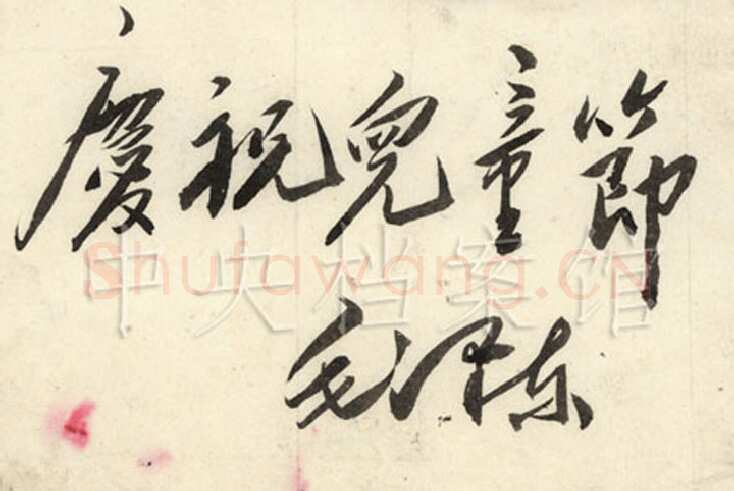 慶祝兒童節
Shufawang.CN
中央档案馆
毛泽东